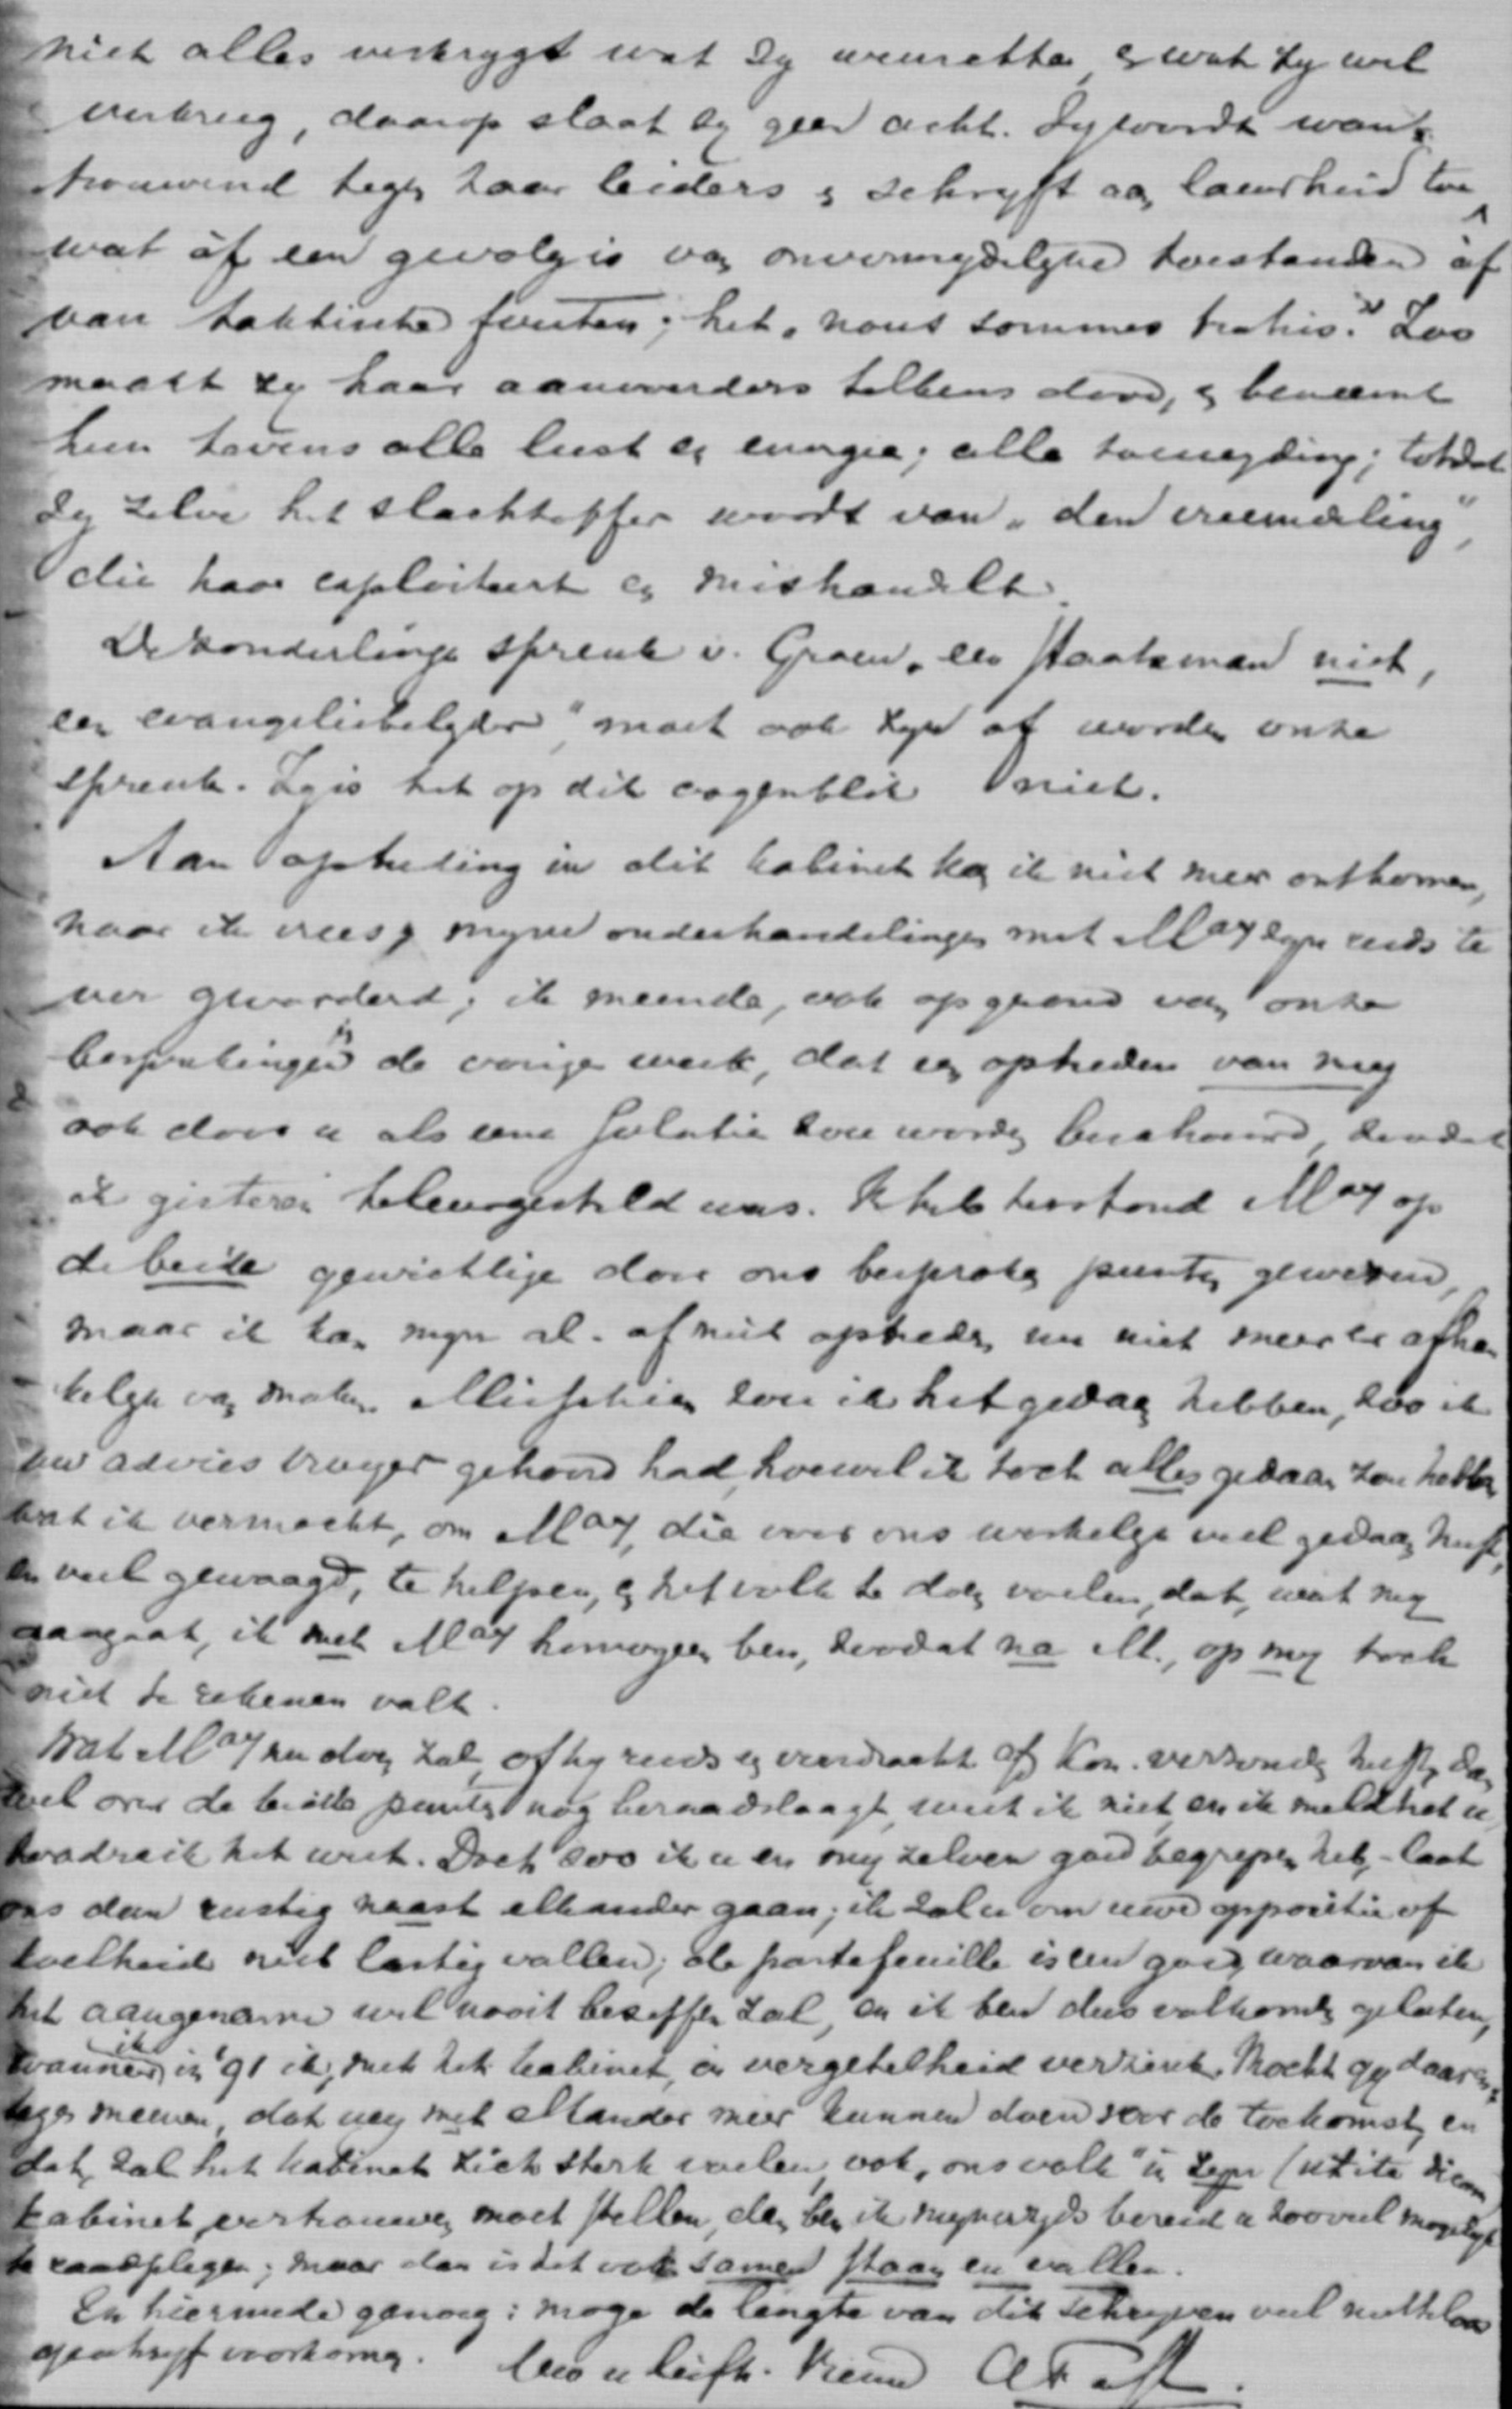 niet alles verkrygt wat zy wenschte, en wat zy wel
verkreeg, daarop slaat zy geen acht. Zy wordt wan=
trouwend tegen haar leiders en schryft aan laauwheid toe
wat òf een gevolg is van onvermydelyke toestanden òf
van taktische fouten; het "nous sommes trahis." Zoo
maakt zy haar aanvoerders telkens dood, en beneemt
hun tevens alle lust en energie; alle toewyding; totdat
zy zelve het slachtoffer wordt van "den vreemdeling",
die haar exploiteert en mishandelt.
De zonderlinge spreuk v. Groen "een staatsman niet,
een evangeliebelyder", moet ook zyn of worden onze
spreuk. Zy is het op dit oogenblik niet.
Aan optreding in dit kabinet kan ik niet meer ontkomen,
naar ik vrees; myne onderhandelingen met May zyn reeds te
ver gevorderd; ik meende, ook op grond van onze
besprekingen in de vorige week, dat een optreden van my
ook door u als eene solutie zou worden beschouwd, zoodat
ik gisteren teleurgesteld was. Ik heb terstond May op
de beide gewichtige door ons besproken punten gewezen,
maar ik kan myn al- of niet optreden nu niet meer er afhan
kelyk van maken. Misschien zou ik het gedaan hebben, zoo ik
uw advies vroeger gehoord had, hoewel ik toch alles gedaan zou hebben
wat ik vermocht, om May, die voor ons werkelyk veel gedaan heeft,
en veel gewaagd, te helpen, en het volk te doen voelen, dat, wat my
aangaat, ik met May homogeen ben, zoodat na M., op my toch
niet te rekenen valt.
Wat May nu doen zal, of hy reeds een voordracht aan Kon. verzonden heeft, dan
wel over de beide punten nog beraadslaagt, weet ik niet, en ik meld het u,
zoodra ik het weet. Doch zoo ik u en my zelven goed begrepen heb, - laat
ons dan rustig naast elkander gaan; ik zal u om uwe oppositie of
koelheid niet lastig vallen; de portefeuille is een goed, waarvan ik
het aangename wel nooit beseffen zal, en ik ben dus volkomen gelaten,
wanneer ik in '91 ik, met het kabinet, in vergetelheid verzink. Mocht gy daaren=
tegen meenen, dat wy met elkander meer kunnen doen voor de toekomst, en
dat, zal het kabinet zich sterk voelen, ook "ons volk" in zyn (ut ita dicam)
kabinet vertrouwen moet stellen, dan ben ik mynerzyds bereid u zooveel mogelyk
te raadplegen; maar dan is het ook samen staan en vallen.
En hiermede genoeg: moge de lengte van dit schryven veel nutteloos
geschryf voorkomen. Uw u liefh. Vriend